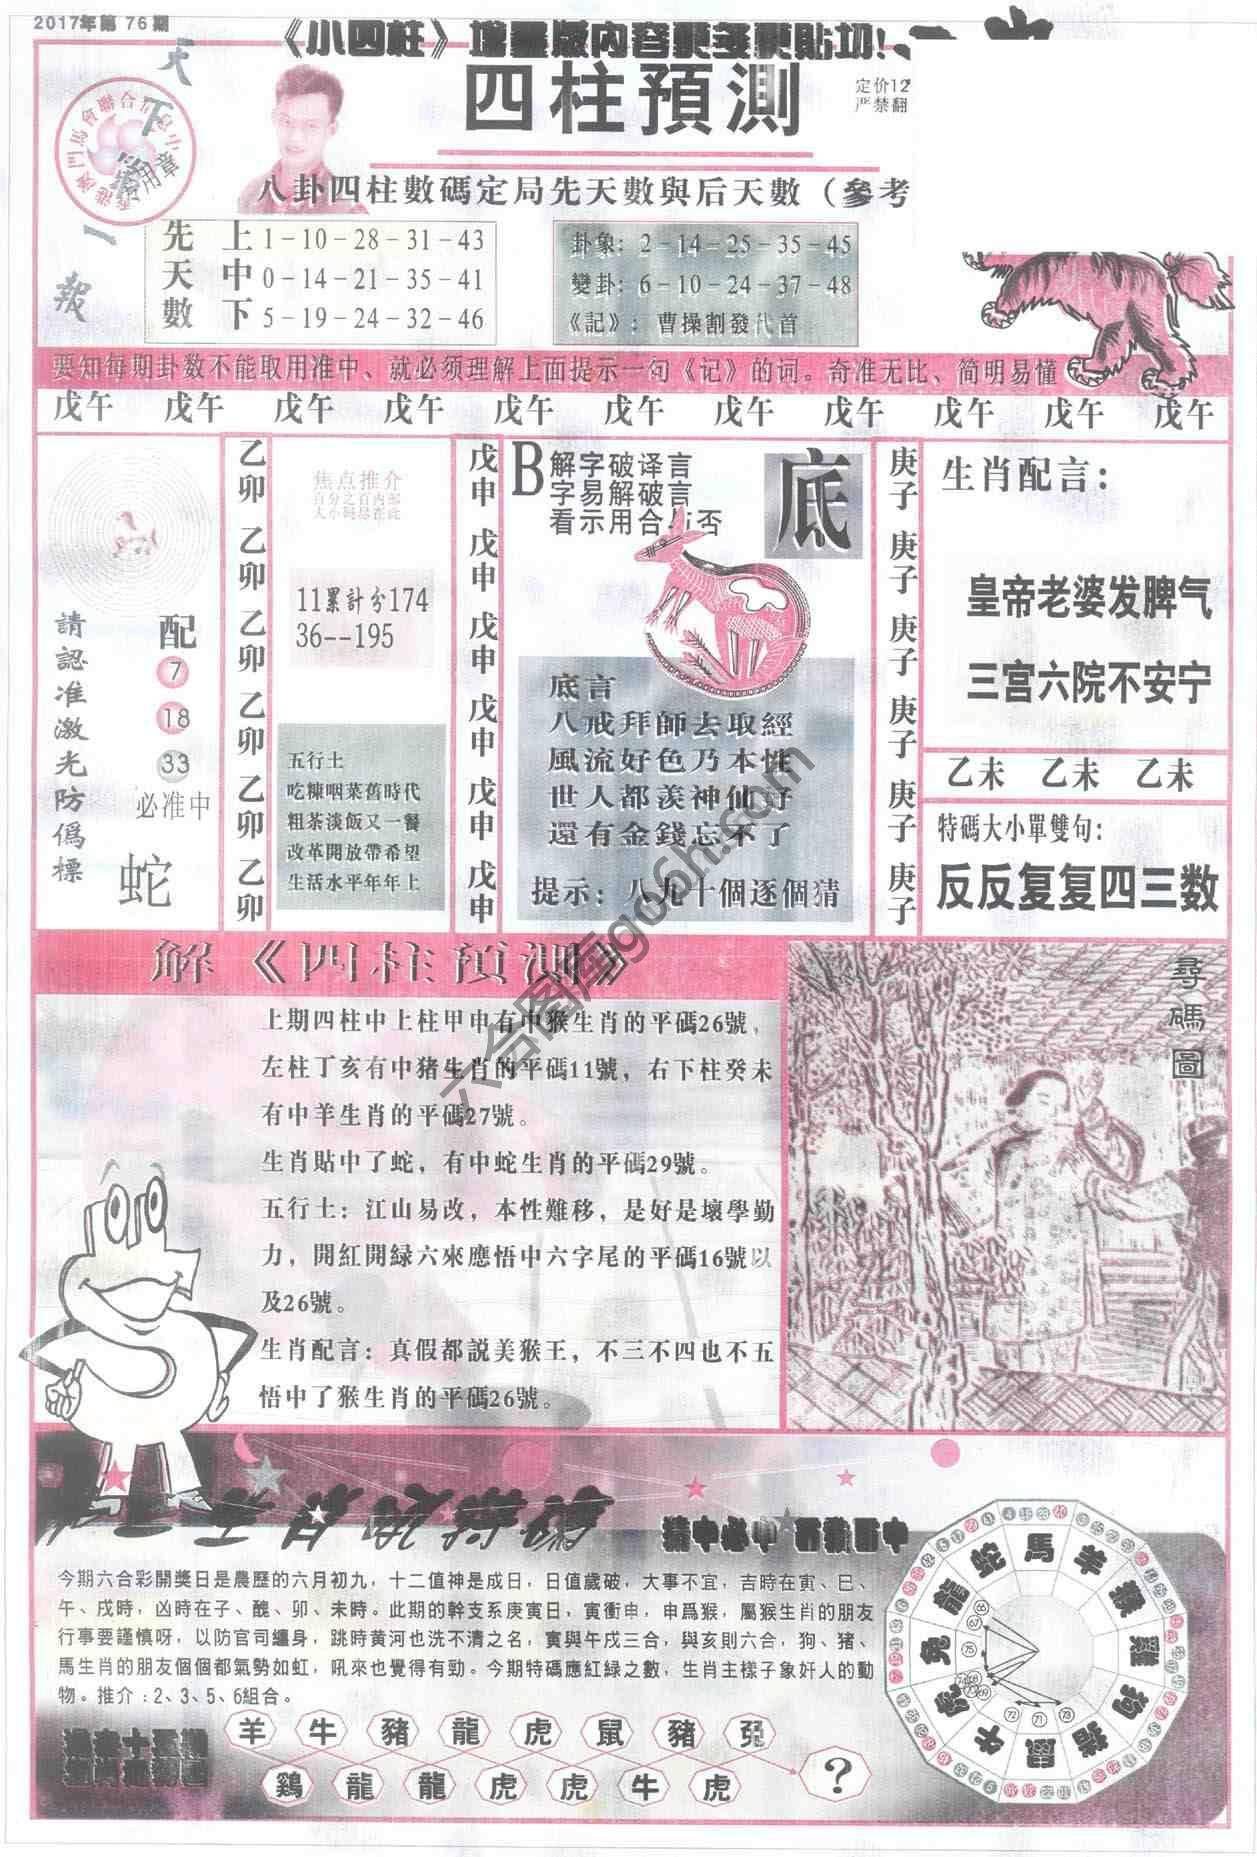 2017年第 76 期
《小四柱》
四柱預測
定价12
严禁翻
天下第一報
港澳門馬會聯合信息中
用章
八卦四柱數碼定局先天數與后天數（參考
先天數
上 1－10－28－31－43
中 0－14－21－35－41
下 5－19－24－32－46
卦象：2－14－25－35－45
變卦：6－10－24－37－48
《記》：曹操割發代首
要知每期卦数不能取用准中、就必须理解上面提示一句《记》的词。奇准无比、简明易懂
戊午 戊午 戊午 戊午 戊午 戊午 戊午 戊午 戊午 戊午 戊午
請認准激光防僞標
配
7
18
33
必准中
蛇
乙卯 乙卯 乙卯 乙卯 乙卯 乙卯
焦点推介
百分之百内部
大小码尽在此
11累計分174
36--195
五行土
吃糠咽菜舊時代
粗茶淡飯又一餐
改革開放帶希望
生活水平年年上
戊申 戊申 戊申 戊申 戊申 戊申
B
解字破译言
字易解破言
看示用合与否
底
底言
八戒拜師去取經
風流好色乃本性
世人都羡神仙好
還有金錢忘不了
提示：八九十個逐個猜
庚子 庚子 庚子 庚子 庚子 庚子
生肖配言：
皇帝老婆发脾气
三宫六院不安宁
乙未 乙未 乙未
特碼大小單雙句：
反反复复四三数
解《四柱預測》
上期四柱中上柱甲申有中猴生肖的平碼26號，
左柱丁亥有中猪生肖的平碼11號，右下柱癸未
有中羊生肖的平碼27號。
生肖貼中了蛇，有中蛇生肖的平碼29號。
五行土：江山易改，本性難移，是好是壞學勤
力，開紅開緑六來應悟中六字尾的平碼16號以
及26號。
生肖配言：真假都説美猴王，不三不四也不五
悟中了猴生肖的平碼26號。
尋碼圖
六合图库go6h.com
今期六合彩開獎日是農歷的六月初九，十二值神是成日，日值歲破，大事不宜，吉時在寅、巳、
午、戌時，凶時在子、醜、卯、未時。此期的幹支系庚寅日，寅衝申，申爲猴，屬猴生肖的朋友
行事要謹慎呀，以防官司纏身，跳時黄河也洗不清之名，寅與午戌三合，與亥則六合，狗、猪、
馬生肖的朋友個個都氣勢如虹，吼來也覺得有勁。今期特碼應紅緑之數，生肖主樣子象奸人的動
物。推介：2、3、5、6組合。
羊 牛 豬 龍 虎 鼠 豬 兔
鷄 龍 龍 虎 虎 牛 虎
？
馬 羊 猴 雞 狗 豬 鼠 牛 虎 兔 龍 蛇